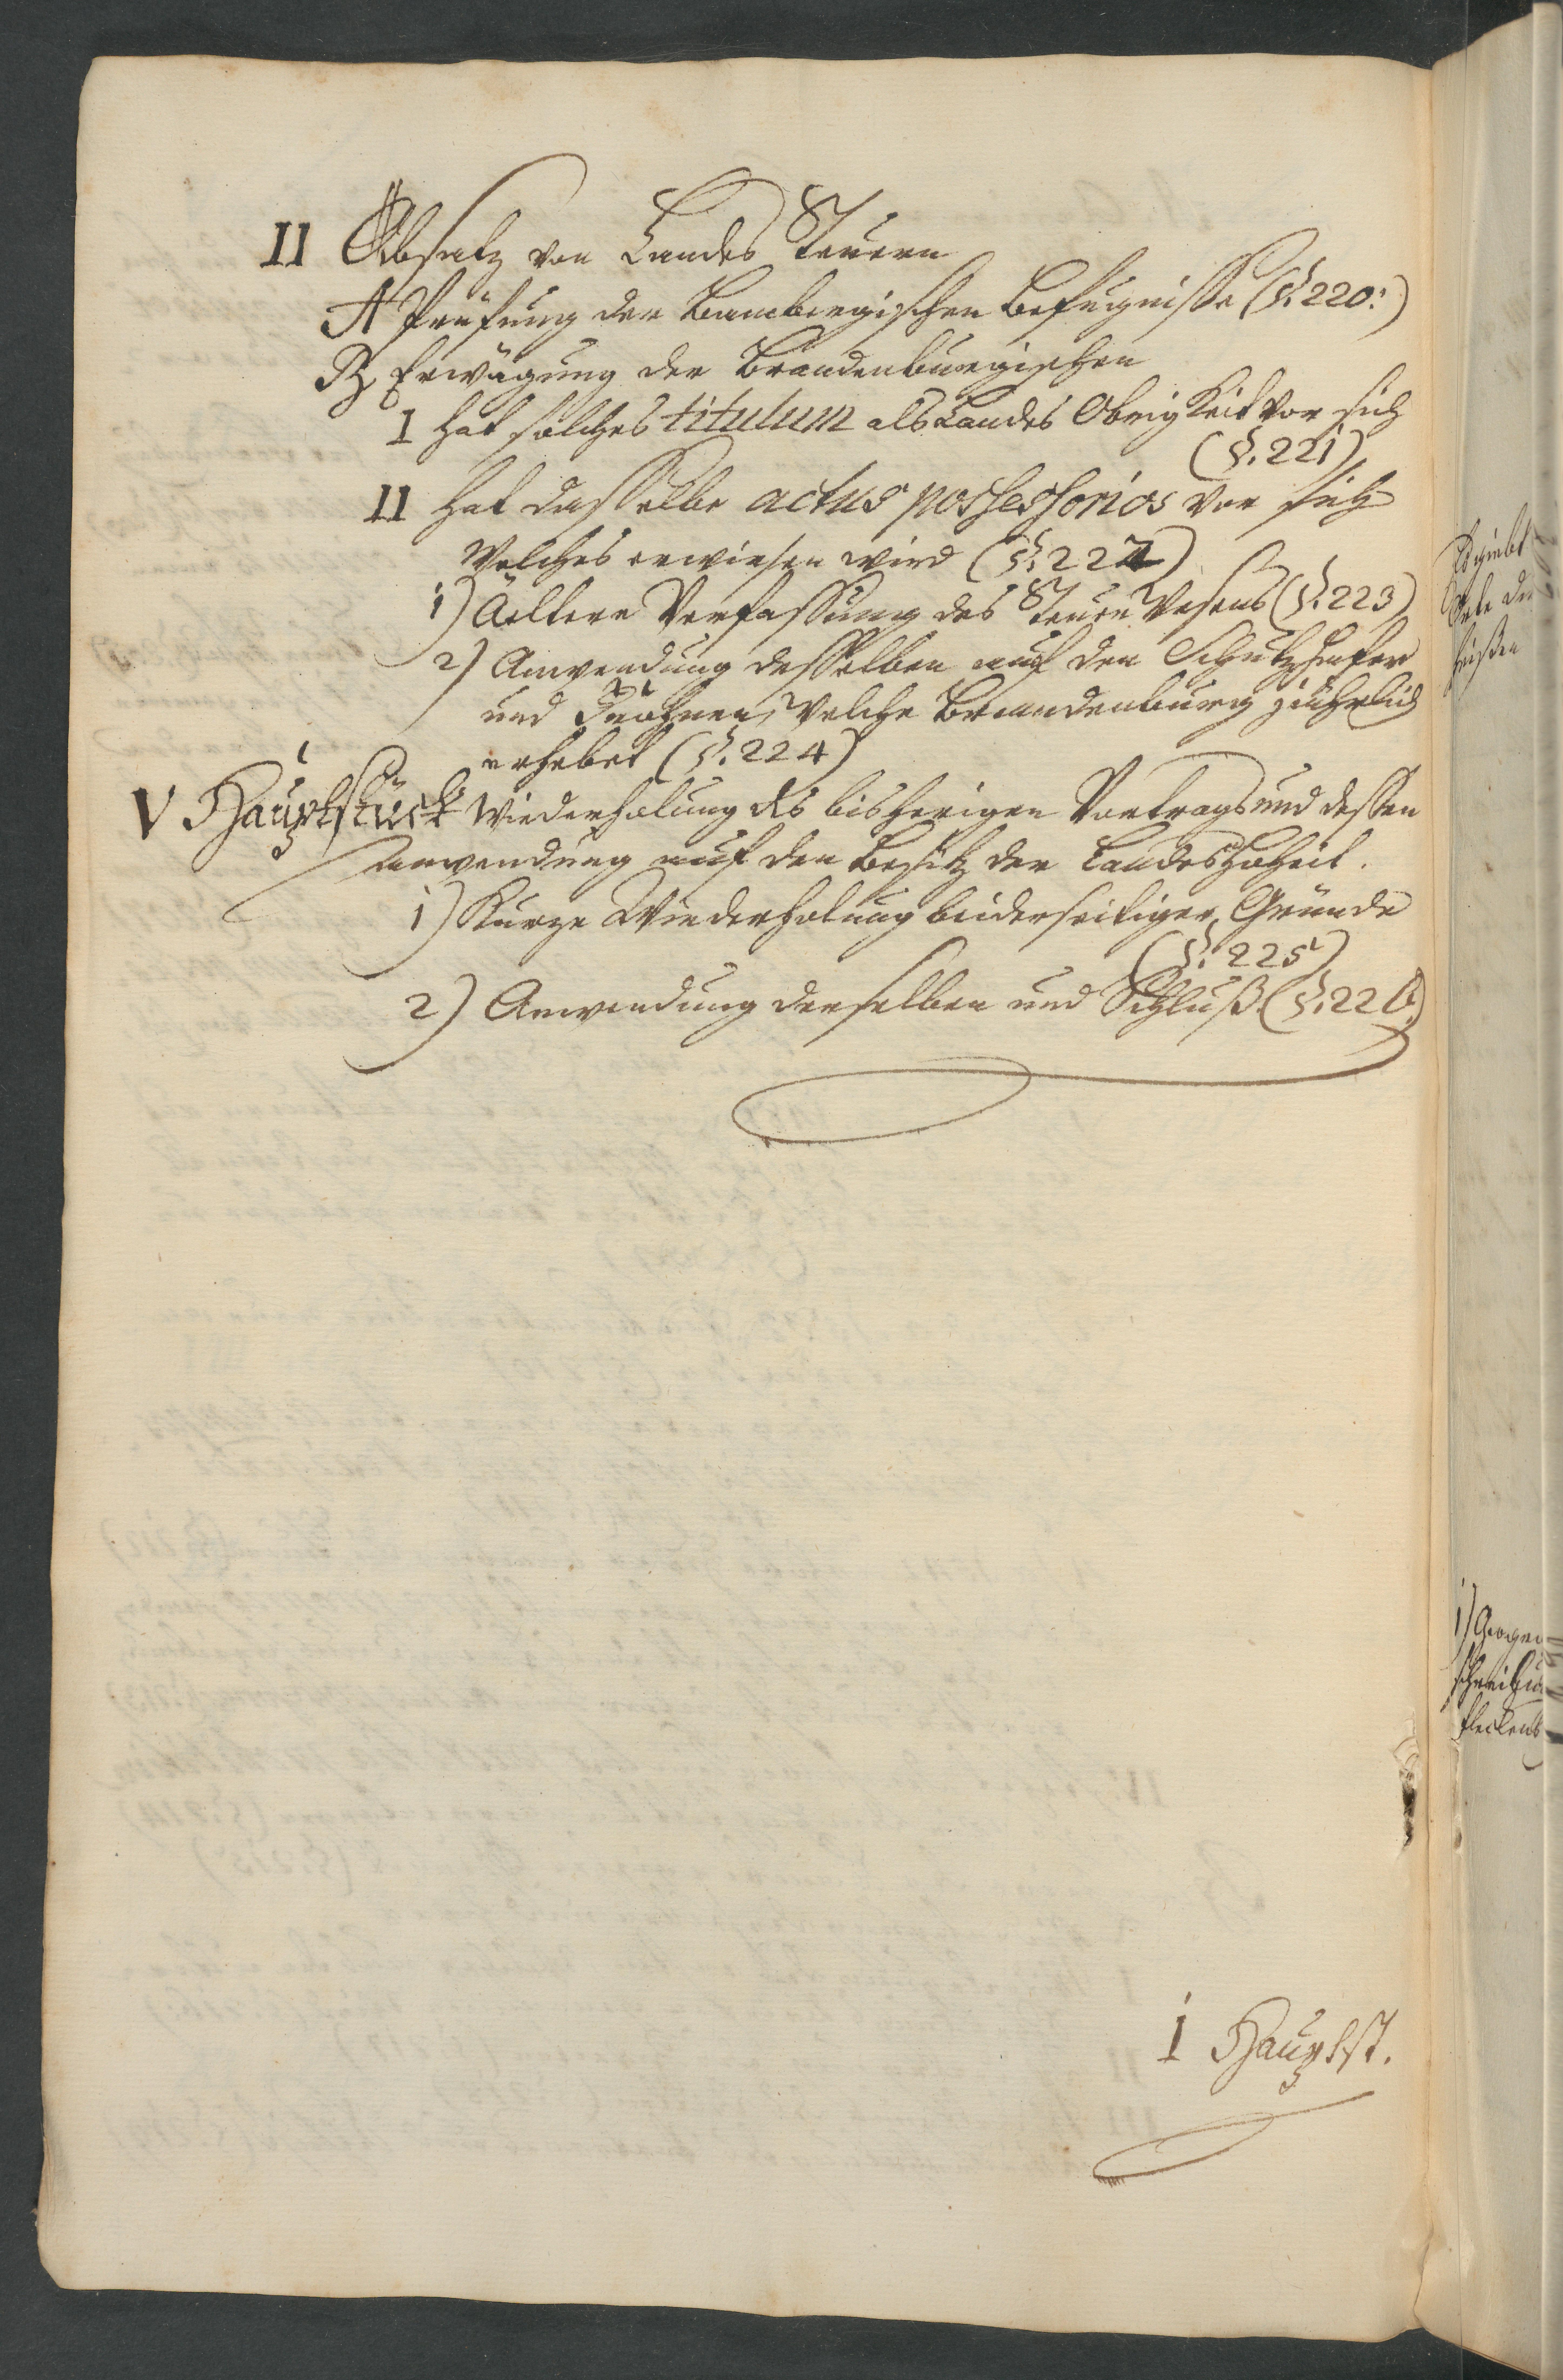 II Absatz von Landes Steuern
A Prüfung der Bambergischen Befugnisse (§. 220.)
B, Erwägung der Brandenburgischen
I hat solches titulum als Landes Obrigkeit vor sich
(§. 221)
II hat dasselbe actus possessorios vor sich
Welches erwiesen wird (§. 222)
1) Aeltere Verfassung des Steuer Wesens (§. 223)
2) Anwendung desselben auf den Schutzhafer
und Frohnen, Welche Brandenburg jährlich
erhebet (§. 224)
V Hauptstück Wiederholung des bisherigen Vortrags und dessen
Anwendung auf den Besitz der Landes Hoheit.
1) Kurze Wiederholung beiderseitiger Gründe
(§. 225)
2) Anwendung derselben und Schluß (§. 226.)
I Hauptst.